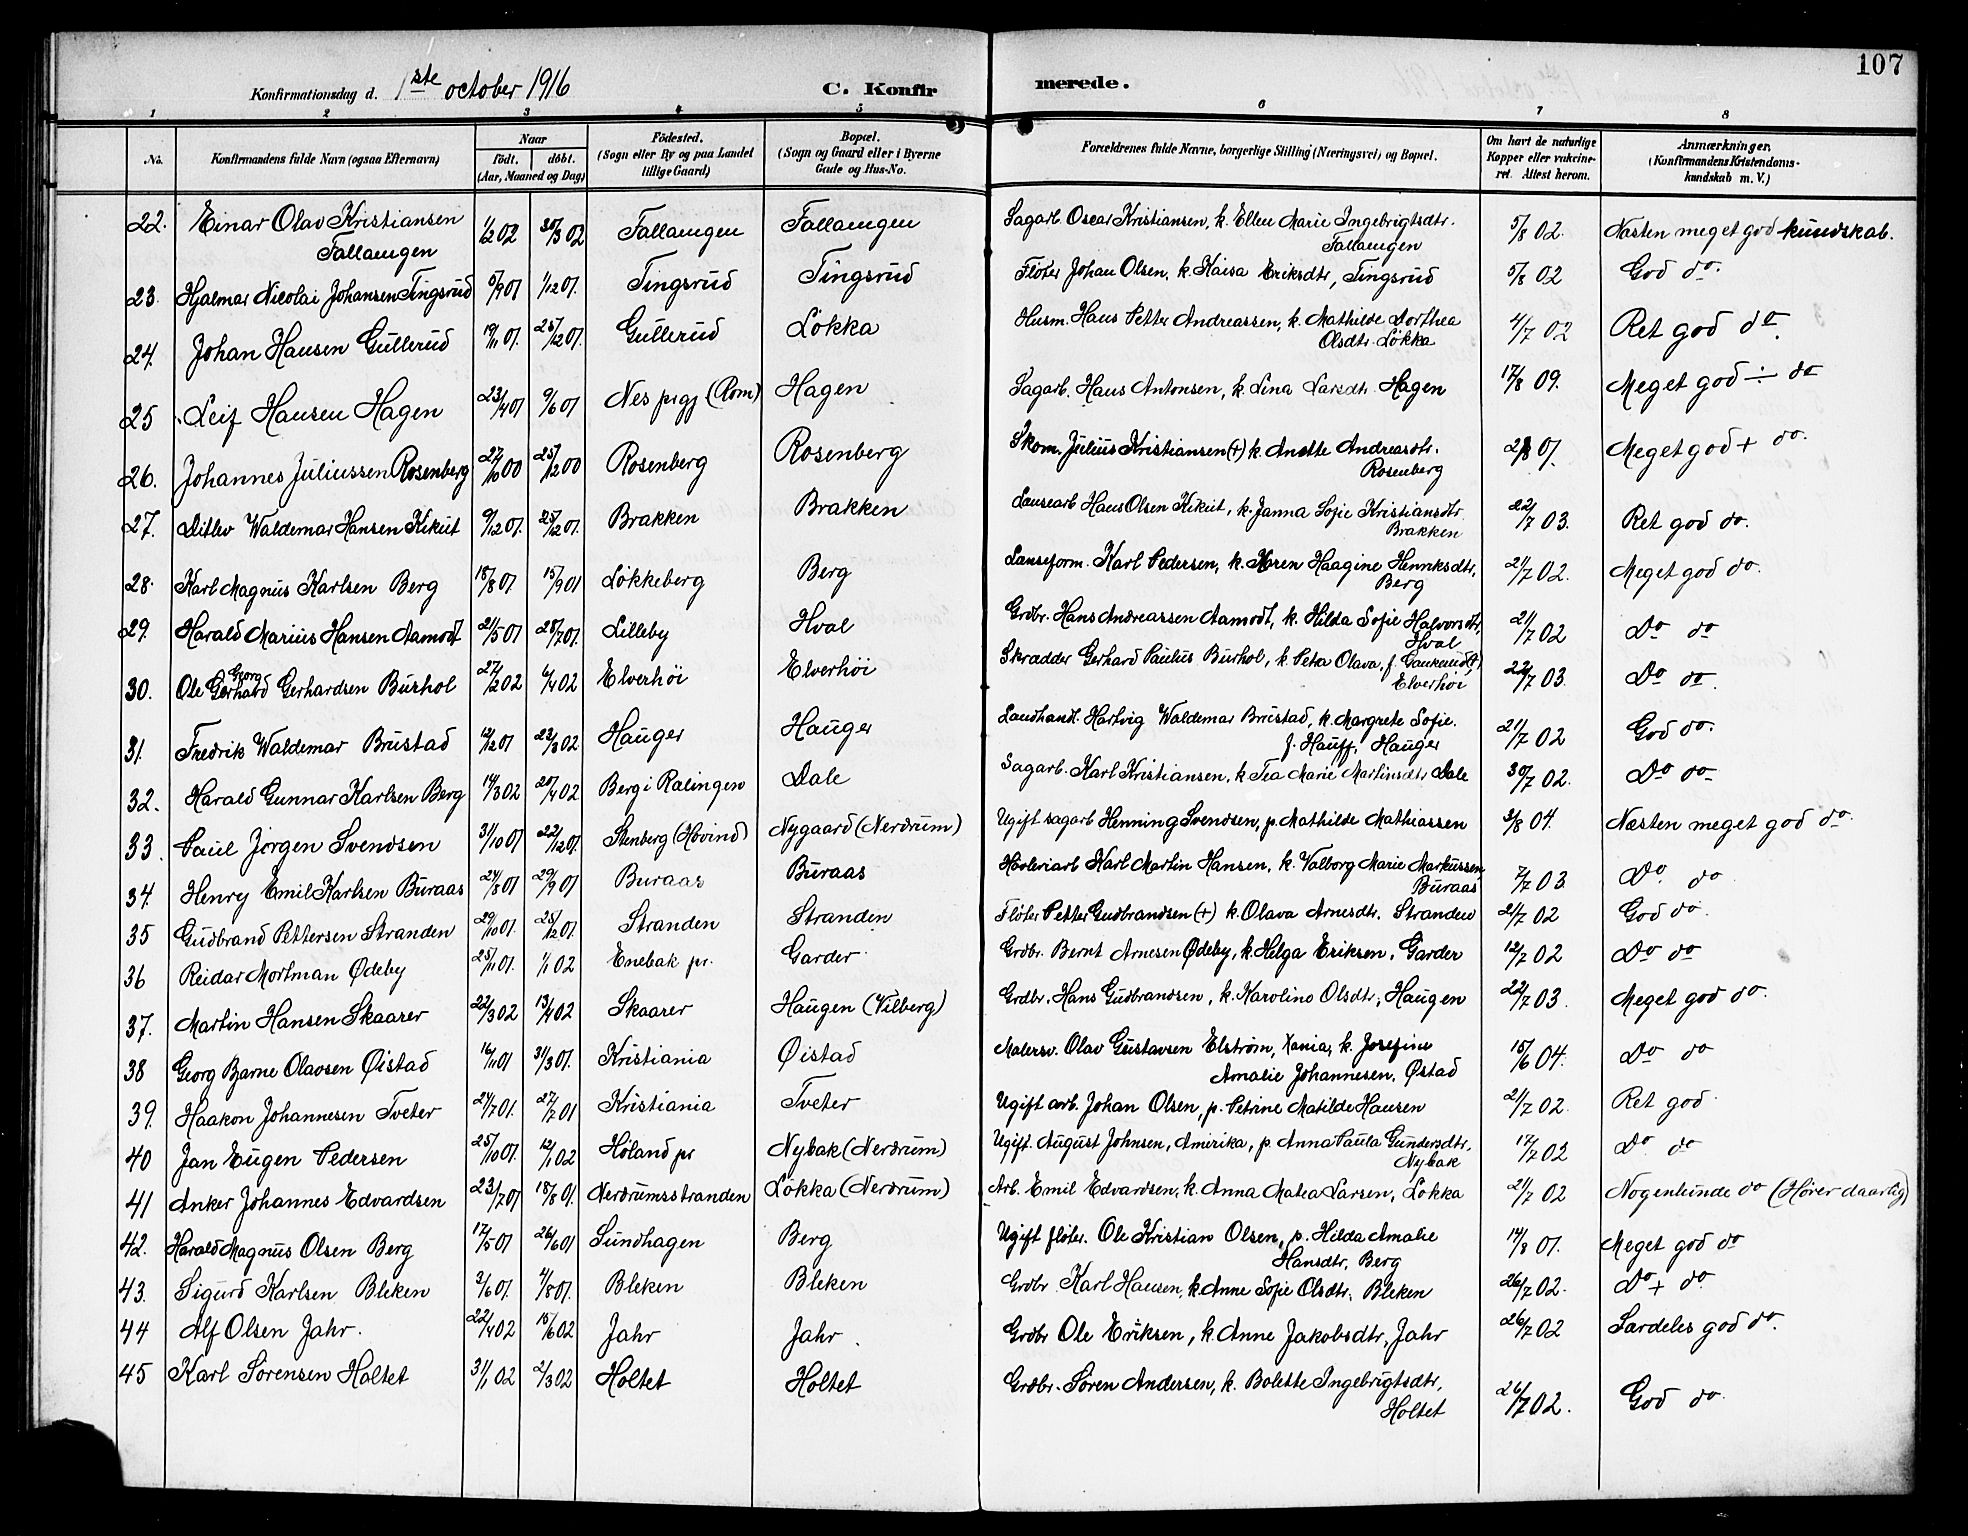 107
Konfirmationsdag d. 1ste october 1916
C. Konfirmerede.
1 2 3 4 5 6 7 8
No. | Konfirmandens fulde Navn (ogsaa Efternavn) | Naar födt. döbt. (Aar, Maaned og Dag) | Födested. (Sogn eller By og paa Landet tillige Gaard) | Bopæl. (Sogn og Gaard eller i Byerne Gade og Hus-No. | Forældrenes fulde Navne, borgerlige Stilling (Næringsvei) og Bopæl. | Om havt de naturlige Kopper eller vakcineret. Attest herom. | Anmærkninger. (Konfirmandens Kristendomskundskab m. V.)
22. Einar Olav Kristiansen Tallaugen | 1/2 02 | 30/3 02 | Tallaugen | Tallaugen | Sagarb. Oscar Kristiansen, k. Ellen Marie Ingebrigtsdtr. Tallaugen | 5/8 02. | Næsten meget god kundskab.
23. Hjalmar Nicolai Johansen Tingsrud | 5/9 01 | 1/12 01. | Tingsrud | Tingsrud | Fløter Johan Olsen, k. Kaisa Eriksdtr, Tingsrud | 5/8 02 | God do.
24. Johan Hansen Gullerud | 19/11 01. | 25/12 01. | Gullerud | Løkka | Husm. Hans Petter Andreassen, k. Mathilde Dorthea Olsdtr. Løkka | 4/7 02 | Ret god do.
25 Leif Hansen Hagen | 23/4 01 | 9/6 01 | Nes prgj (Rom) | Hagen | Sagarb. Hans Antonsen, k. Lina Larsdtr. Hagen | 17/8 09. | Meget god ÷ do
26. Johannes Juliussen Rosenberg | 27/10 00 | 25/12 00 | Rosenberg | Rosenberg | Skom. Julius Kristiansen (+) k. Anette Andreasdtr. Rosenberg | 2/8 01. | Meget god + do.
27. Ditlev Waldemar Hansen Kikut | 9/12 01. | 25/12 01. | Brakken | Brakken | Lænsearb Hans Olsen Kikut, k. Janna Sofie Kristiansdtr. Brakken | 22/7 03. | Ret god do.
28. Karl Magnus Karlsen Berg | 18/8 01 | 15/9 01 | Løkkeberg | Berg | Lænseform. Karl Pedersen, k. Karen Haagine Henriksdtr, Berg | 21/7 02. | Meget god do.
29. Harald Marius Hansen Aamodt | 21/5 01 | 28/7 01. | Lilleby | Hval | Grdbr. Hans Andreassen Aamodt, k. Hilda Sofie Halvorsdtr, Hval | 21/7 02 | Do do
30. Ole Georg Gerhard Gerhardsen Burhol | 27/2 02 | 6/4 02 | Elverhøi | Elverhøi | Skrædder Gerhard Paulus Burhol, k. Petra Olava, Elverhøi | 22/7 03. | Do do.
31. Fredrik Waldemar Brustad | 12/12 01 | 23/3 02 | Hauger | Hauger | Landhandl. Hartvig Waldemar Brustad, k. Margrete Sofie. f. Hauff, Hauger | 21/7 02 | God do.
32. Harald Gunnar Karlsen Berg | 14/3 02 | 20/4 02 | Berg i Rælingen | Dale | Sagarb. Karl Kristiansen, k Tea Marie Martinsdtr. Dale | 30/7 02. | Do do
33. Paul Jørgen Svendsen | 31/10 01 | 22/12 01. | Stenberg (Hovind) | Nygaard (Nerdrum) | Ugift sagarb Henning Svendsen, p. Mathilde Mathiassen | 3/8 04. | Næsten meget god do.
34. Henry Emil Karlsen Buraas | 24/8 01 | 29/9 01 | Buraas | Buraas | Høvleriarb Karl Martin Hansen, k. Valborg Marie Markussen, Buraas | 7/7 03. | Do. do
35 Gudbrand Pettersen Stranden | 29/10 01. | 25/12 01. | Stranden | Stranden | Fløter Petter Gudbrandsen (+) k. Olava Arnesdtr. Stranden | 21/7 02 | God do.
36 Reidar Mortman Ødeby | 25/11 01. | 1/1 02 | Enebak pr. | Garder | Grdbr. Bernt Arnesen Ødeby, k. Helga Eriksen, Garder | 12/7 02 | Do do
37. Martin Hansen Skaarer | 22/3 02 | 13/4 02 | Skaarer | Haugen (Vilberg) | Grdbr. Hans Gudbrandsen, k. Karoline Olsdtr, Haugen | 22/7 03. | Meget god do.
38 Georg Bjarne Olavsen Øistad | 16/1 01 | 31/3 01. | Kristiania | Øistad | Malersv. Olav Gustavsen Elstrøm, Xania, k. Josefine Amalie Johannesen, Østad | 15/6 04. | Do do
39. Haakon Johannesen Tveter | 24/7 01. | 27/7 01 | Kristiania | Tveter | Ugift arb. Johan Olsen, p. Petrine Matilde Hansen | 21/7 02. | Ret god
40 Jan Eugen Pedersen | 25/10 01. | 12/1 02 | Høland pr | Nybak (Nerdrum) | Ugift. August Johnsen, Amerika, p. Anna Paula Gundersdtr, Nybak | 17/7 02 | Do do
41 Anker Johannes Edvardsen | 23/7 01 | 18/8 01. | Nerdrumsstranden | Løkka (Nerdrum) | Arb. Emil Edvardsen, k. Anna Matea Larsen, Løkka | 21/7 02 | Nogenlunde do (Hører daarlig)
42. Harald Magnus Olsen Berg | 17/5 01 | 26/6 01 | Sundhagen | Berg | Ugift fløter. Ole Kristian Olsen, p. Hilda Amalie Hansdtr, Berg | 14/8 01. | Meget god do
43. Sigurd Karlsen Bleken | 3/6 01. | 4/8 01. | Bleken | Bleken | Grdbr. Karl Hansen, k. Anne Sofie Olsdtr. Bleken | 26/7 02. | Do + do
44 Alf Olsen Jahr. | 22/4 02 | 15/6 02 | Jahr | Jahr. | Grdbr Ole Eriksen, k. Anne Jakobsdtr, Jahr | 26/7 02 | Særdeles god do.
45 Karl Sørensen Holtet | 31/1 02 | 2/3 02 | Holtet | Holtet | Grdbr. Søren Andersen, k. Bolette Ingebrigtsdtr, Holtet | 26/7 02. | God do.